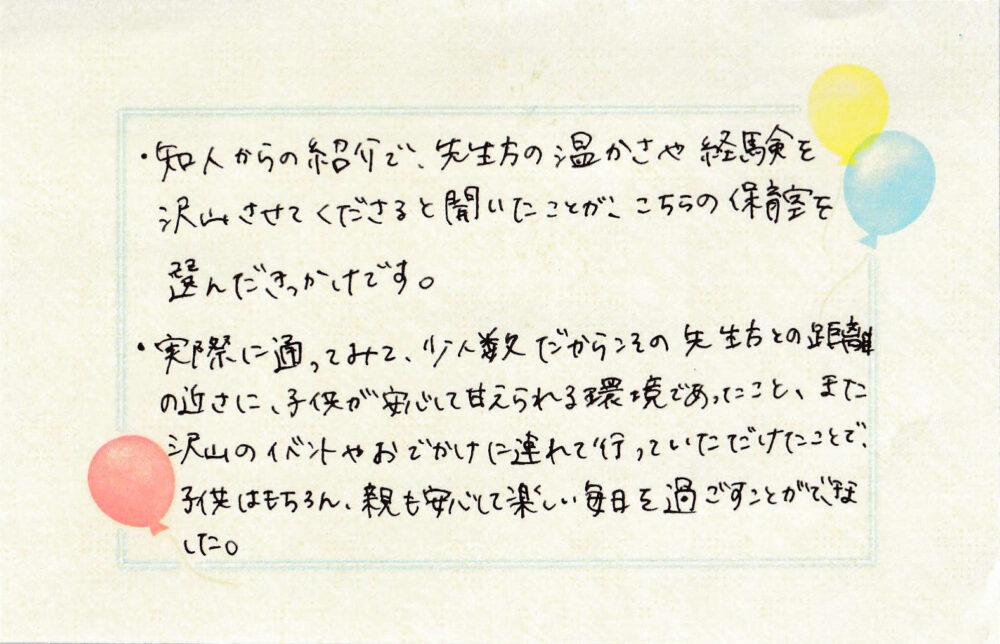 ・知人からの紹介で、先生方の温かさや経験を
沢山させてくださると聞いたことが、こちらの保育室を
選んだきっかけです。
・実際に通ってみて、少人数だからこその先生方との距離
の近さに、子供が安心して甘えられる環境であったこと、また
沢山のイベントやおでかけに連れて行っていただけたことで、
子供はもちろん、親も安心して楽しい毎日を過ごすことができま
した。